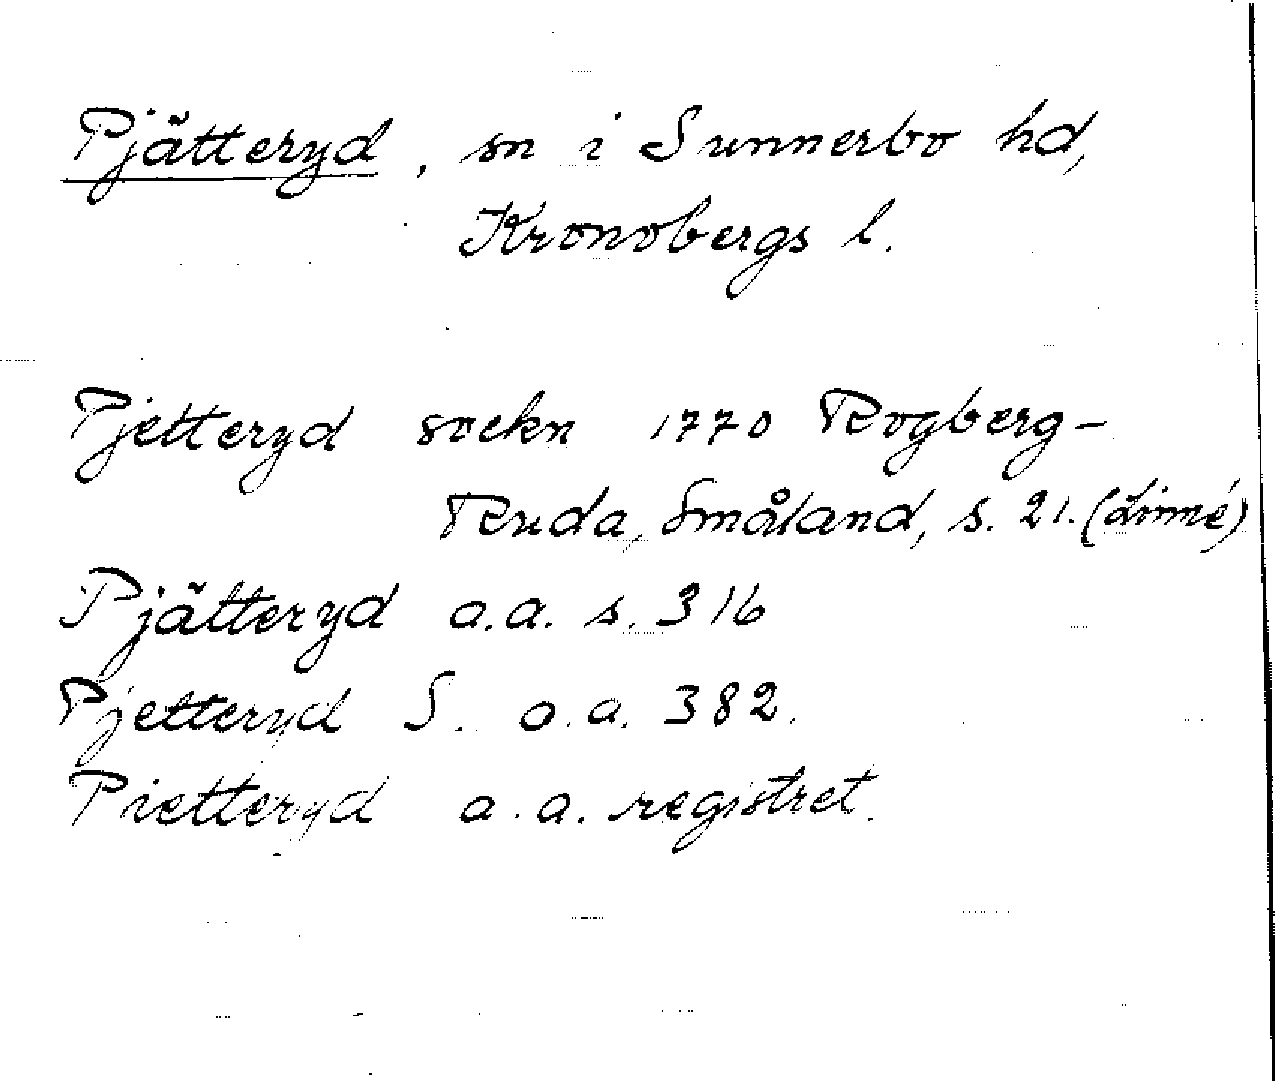 Pjätteryd, sn i Sunnerbo hd,
Kronobergs l.
Pjetteryd sockn 1770 Rogberg-
Ruda, Småland, s. 21. (Linné)
Pjätteryd a.a. s. 316
Pjetteryd S. a.a. 382.
Pietteryd a.a. registret.